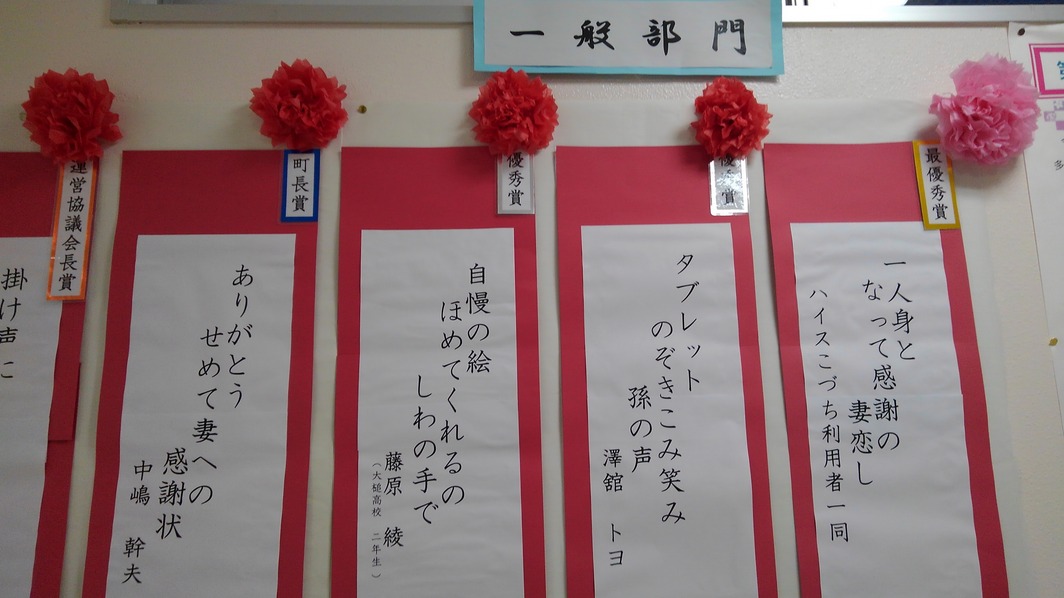 一般部門
最優秀賞
一人身と
なって感謝の
妻恋し
ハイスこづち利用者一同
優秀賞
タブレット
のぞきこみ笑み
孫の声
澤舘 トヨ
優秀賞
自慢の絵
ほめてくれるの
しわの手で
藤原 綾
(大槌高校 二年生)
町長賞
ありがとう
せめて妻への
感謝状
中嶋 幹夫
運営協議会長賞
掛け声に
多